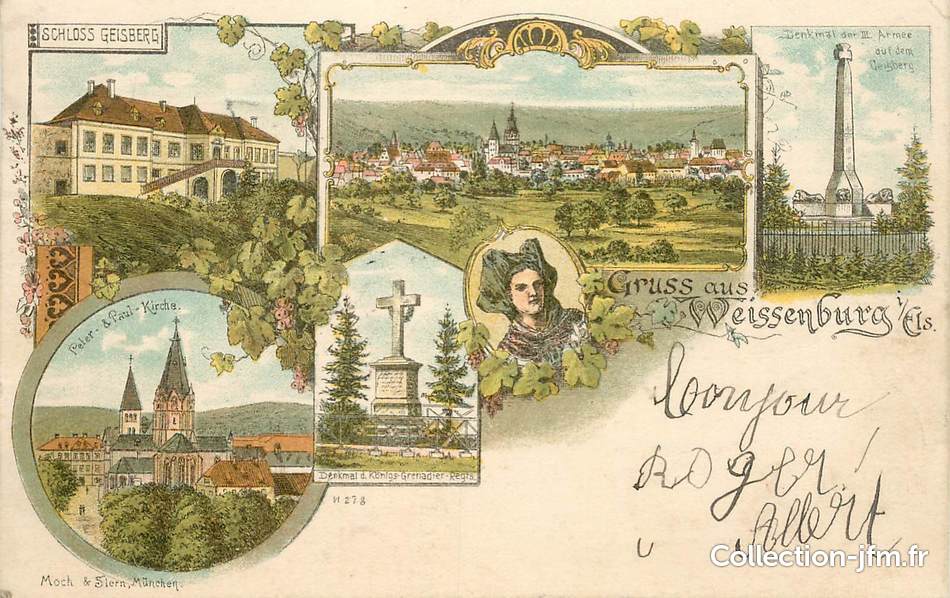 SCHLOSS GEISBERG
Denkmal der III. Armee
auf dem
Geisberg
Gruss aus
Weissenburg i/Els.
Peter- & Paul-Kirche.
Denkmal d. Königs-Grenadier-Regts.
N 278
Moch & Stern, München.
Bonjour
ROger
Albert
Collection-jfm.fr